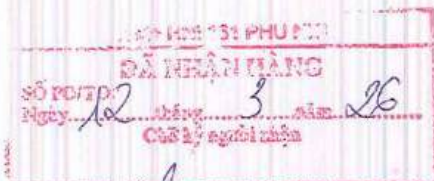 151 PHÚ
ĐÃ NHẬN HÀNG
SỐ PO/TO:
Ngày 12 tháng 3 năm 26
Chữ ký người nhận